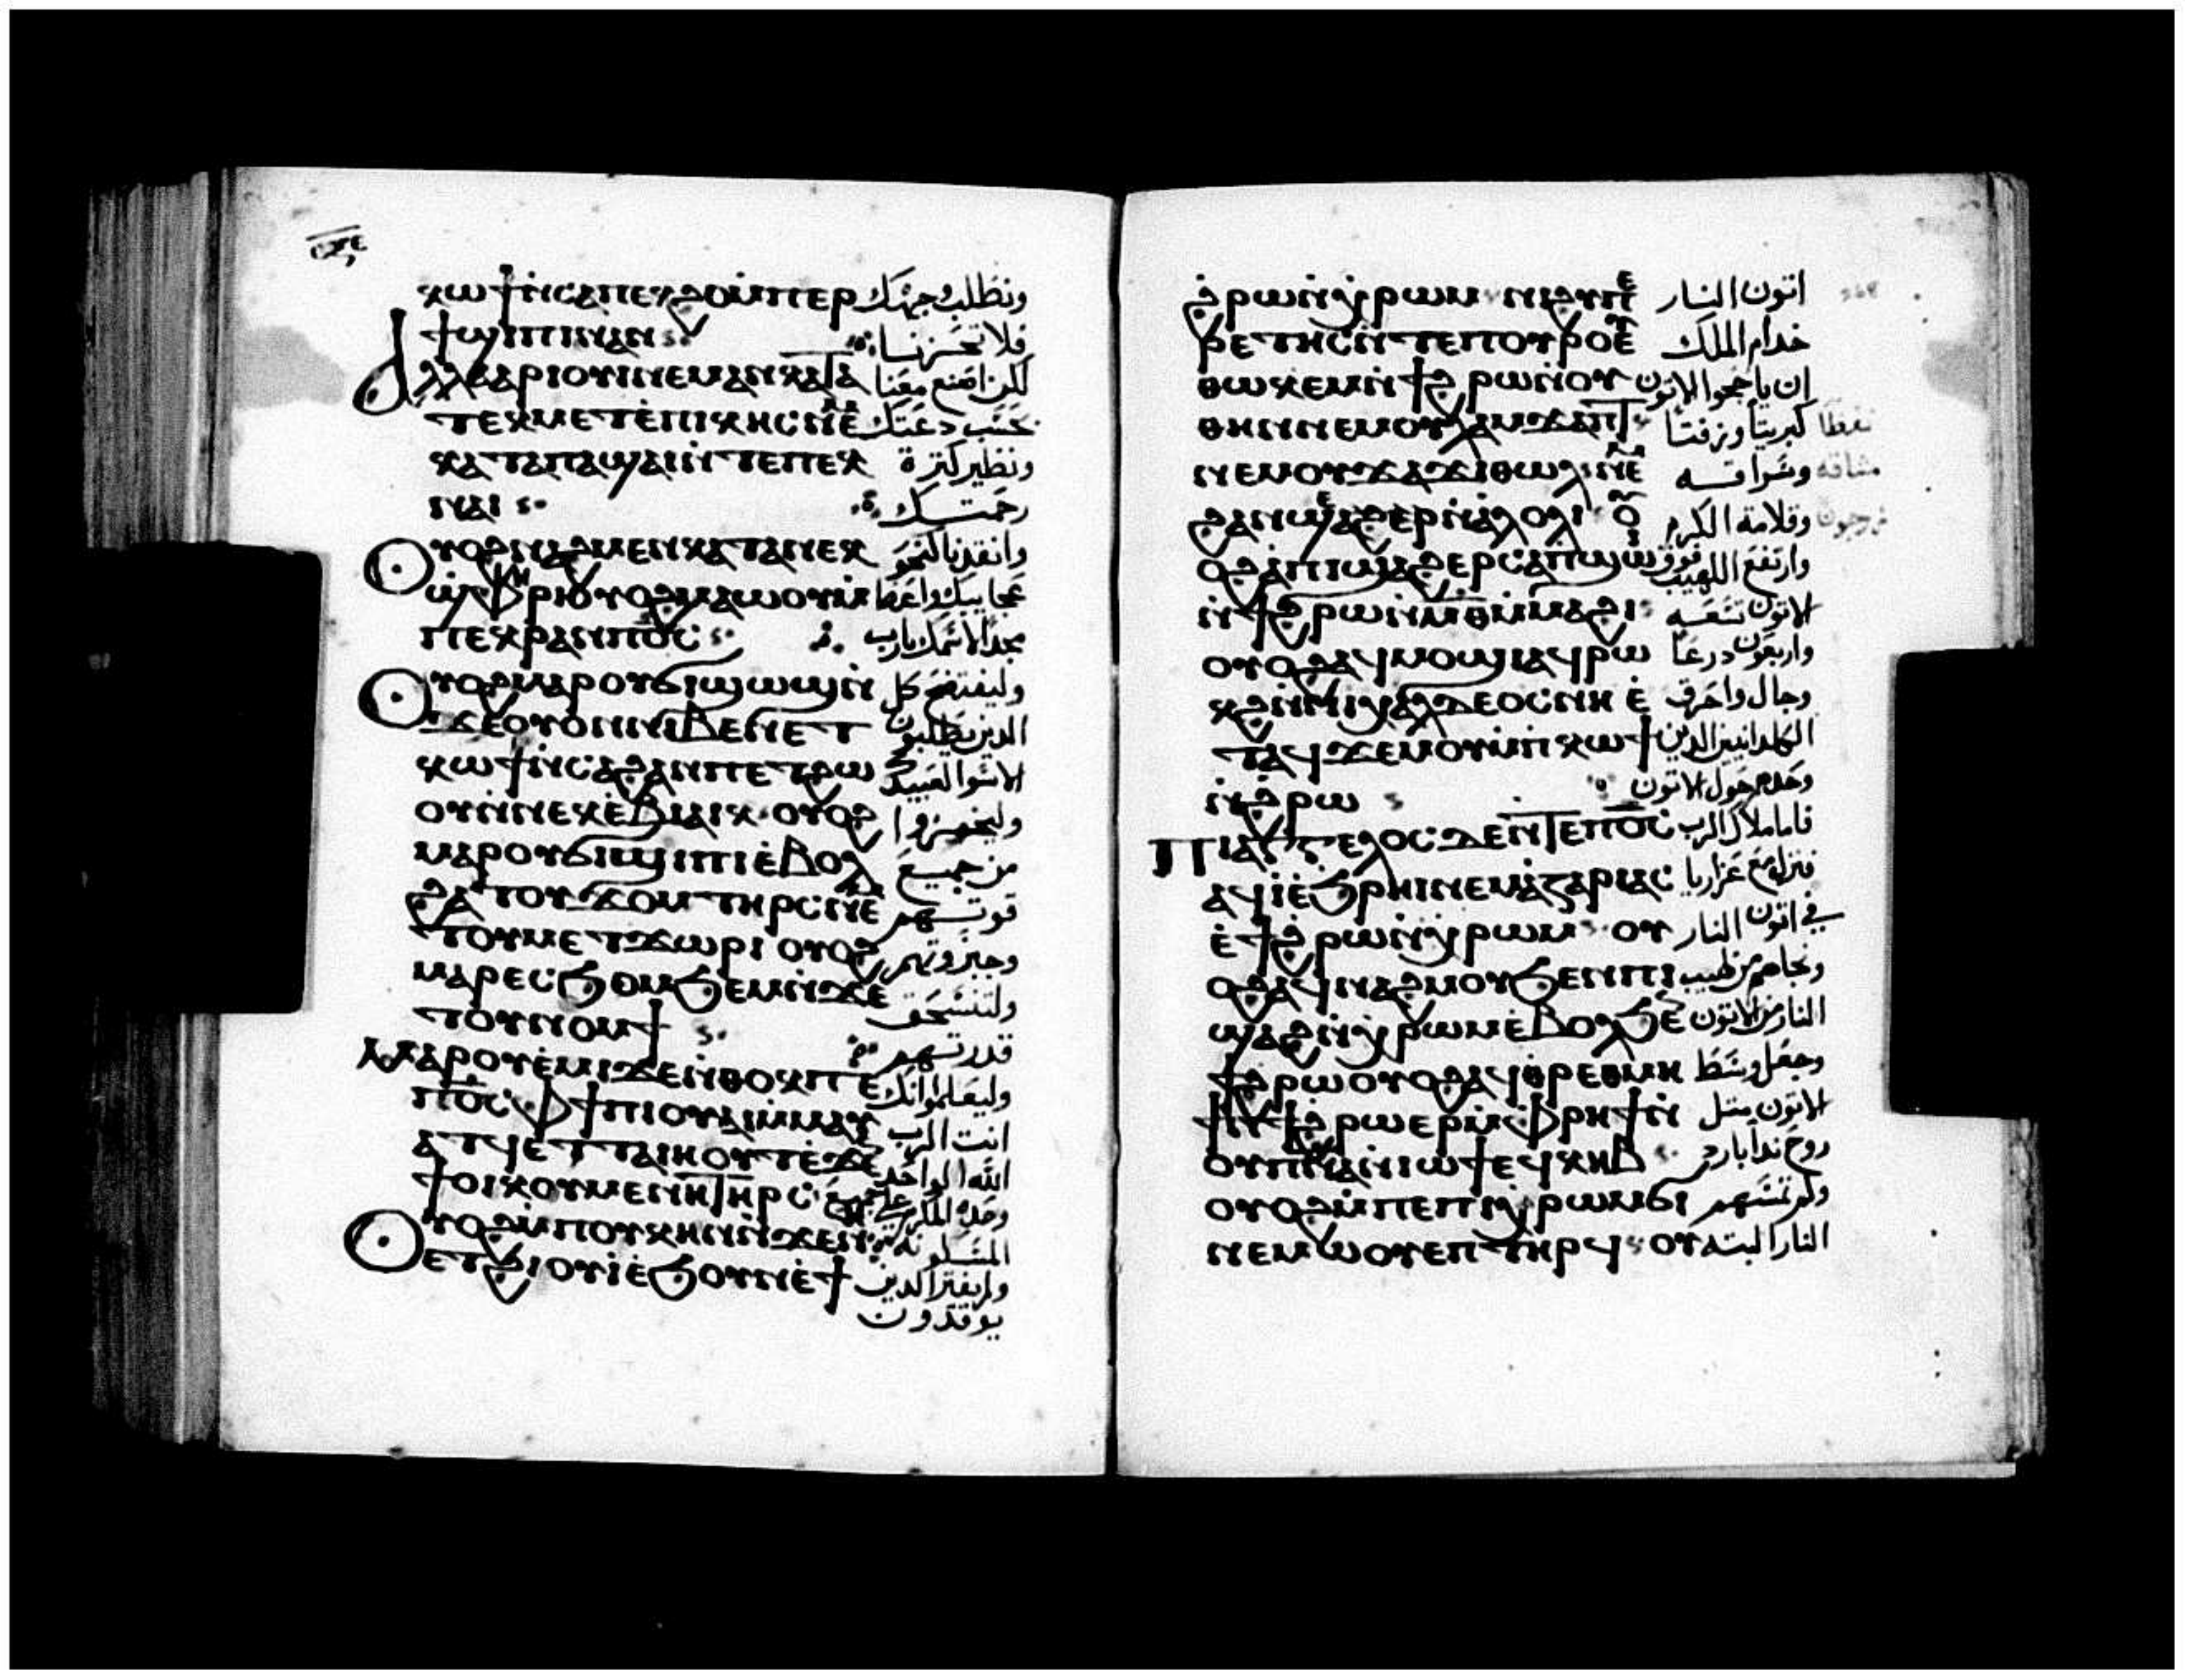 ⲕⲱϯ ⲛ̀ⲥⲁ ⲡⲉⲕϩⲟ ⲙ̀ⲡⲉⲣ ونطلب وجهك
ϯϣⲓⲡⲓ ⲛⲁⲛ فلا تخزنا
ⲁⲗⲗⲁ ⲁⲣⲓⲟⲩⲓ ⲛⲉⲙⲁⲛ ⲕⲁⲧⲁ لكن اصنع معنا
ⲧⲉⲕⲙⲉⲧⲉ̀ⲡⲓⲕⲏⲥ ⲛⲉⲙ بحسب دعتك
ⲕⲁⲧⲁ ⲡⲁϣⲁⲓ ⲛ̀ⲧⲉ ⲡⲉⲕ ونظير كثرة
ⲛⲁⲓ رحمتك
ⲟⲩⲟϩ ⲛⲁϩⲙⲉⲛ ⲕⲁⲧⲁ ⲛⲉⲕ وانقذنا كنحو
ϣ̀ⲫⲏⲣⲓ ⲟⲩⲟϩ ⲙⲁⲱⲟⲩ ⲙ̀ عجايبك واعط
ⲡⲉⲕⲣⲁⲛ ⲡⲟ̅ⲥ̅ مجدا لاسمك يارب
ⲟⲩⲟϩ ⲙⲁⲣⲟⲩϭⲓϣⲱϣ ⲛ̀ وليفتضح كل
ϫⲉ ⲟⲩⲟⲛ ⲛⲓⲃⲉⲛ ⲉⲧ الذين يطلبون
ⲕⲱϯ ⲛ̀ⲥⲁ ϩⲁⲛⲡⲉⲧϩⲱ الاسوا لعبيدك
ⲟⲩ ⲛ̀ⲛⲉⲕⲉ̀ⲃⲓⲁⲓⲕ ⲟⲩⲟϩ وليخزوا
ⲙⲁⲣⲟⲩϭⲓϣⲓⲡⲓ ⲉ̀ⲃⲟⲗ من جميع
ϩⲁ ⲧⲟⲩϫⲟⲙ ⲧⲏⲣⲥ ⲛⲉⲙ قوتهم
ⲧⲟⲩⲙⲉⲧϫⲱⲣⲓ ⲟⲩⲟϩ وجبروتهم
ⲙⲁⲣⲉⲥϧⲟⲙϧⲉⲙ ⲛ̀ϫⲉ ولتنسحق
ⲧⲟⲩⲛⲟⲙϯ قدرتهم
ⲙⲁⲣⲟⲩⲉ̀ⲙⲓ ϫⲉ ⲛ̀ⲑⲟⲕ ⲡⲉ وليعلموا انك
ⲡⲟ̅ⲥ̅ ⲫϯ ⲡⲓⲟⲩⲁⲓ ⲙ̀ⲙⲁⲩ انت الرب
ⲁⲧϥ ⲉⲧⲧⲁⲓⲏⲟⲩⲧ ⲉ̀ϫⲉⲛ الله الواحد
ϯⲟⲓⲕⲟⲩⲙⲉⲛⲏ ⲧⲏⲣⲥ وحده المكرم على
ⲟⲩⲟϩ ⲙ̀ⲡⲟⲩⲕⲏⲛ ⲛ̀ϫⲉ ⲛⲏ المسكونة
ⲉⲧϩⲓⲟⲩⲓ ⲉ̀ϧⲟⲩⲛ ⲉ̀ϯ ولم يفترا الذين
يوقدون
ϩⲣⲱ ⲛ̀ⲭⲣⲱⲙ ⲛⲓϩⲩⲡⲉ اتون النار
ⲣⲉⲧⲏⲥ ⲛ̀ⲧⲉ ⲡⲟⲩⲣⲟ ⲉⲧ خدام الملك
ⲑⲱⲕ ⲉⲙⲛ̀ϯϩⲣⲱ ⲛ̀ⲟⲩ ان ياججوا الاتون
ⲑⲏⲛ ⲛⲉⲙ ⲟⲩⲗⲁⲙϫⲁⲡⲧ كبريتا وزفتا نفطا
ⲛⲉⲙ ⲟⲩϫⲁϫⲓⲑⲱⲗ ⲛⲉⲙ وسراقه مشاقه
ϩⲁⲛϣⲁϩⲉⲣ ⲛ̀ⲁ̀ⲗⲟⲗⲓ ⲟⲩ وقلامة الكرم زرجون
ⲟϩ ⲁ̀ ⲡⲓϣⲁϩ ⲉⲣⲥⲁⲡϣⲱⲓ وارتفع اللهيب فوق
ⲛ̀ϯϩⲣⲱ ⲛ̀ⲙ̅ⲑ̅ ⲙ̀ⲙⲁϩⲓ الاتون تسعه
ⲟⲩⲟϩ ⲁϥⲙⲟϣⲓ ⲁϥⲣⲱ واربعون درعا
ⲕϩ ⲛ̀ⲛⲓⲭⲁⲗⲇⲉⲟⲥ ⲛⲏ ⲉ̀ وجال واحرق
ⲧⲁϥϫⲉⲙⲟⲩ ⲙ̀ⲡⲕⲱϯ الكلدانيين الذين
ⲛ̀ϯϩⲣⲱ وجدهم حول الاتون
ⲡⲓⲁⲅⲅⲉⲗⲟⲥ ⲇⲉ ⲛ̀ⲧⲉ ⲡⲟ̅ⲥ̅ فاما ملاك الرب
ⲁϥⲓ̀ ⲉ̀ϧⲣⲏⲓ ⲛⲉⲙ ⲁ̀ⲍⲁⲣⲓⲁⲥ فنزل مع عزاريا
ⲉ̀ϯϩⲣⲱ ⲛ̀ⲭⲣⲱⲙ ⲟⲩ في اتون النار
ⲟϩ ⲁϥⲛⲁϩⲙⲟⲩ ϧⲉⲛ ⲡⲓ ونجاهم من لهيب
ϣⲁϩ ⲛ̀ⲭⲣⲱⲙ ⲉ̀ⲃⲟⲗ ϧⲉⲛ النار من الاتون
ϯϩⲣⲱ ⲟⲩⲟϩ ⲁϥⲑⲣⲉ ⲑⲙⲏ وجعل وسط
ϯ ⲛ̀ϯϩⲣⲱ ⲉⲣ ⲙ̀ⲫⲣⲏϯ ⲛ̀ الاتون مثل
ⲟⲩⲡ̅ⲛ̅ⲁ̅ ⲛ̀ⲓⲱϯ ⲉϥⲕⲏⲃ روح ندا بارد
ⲟⲩⲟϩ ⲙ̀ⲡⲉ ⲡⲓⲭⲣⲱⲙ ϭⲓ ولم تمسهم
ⲛⲉⲙⲱⲟⲩ ⲉⲡⲧⲏⲣϥ ⲟⲩ النار البته